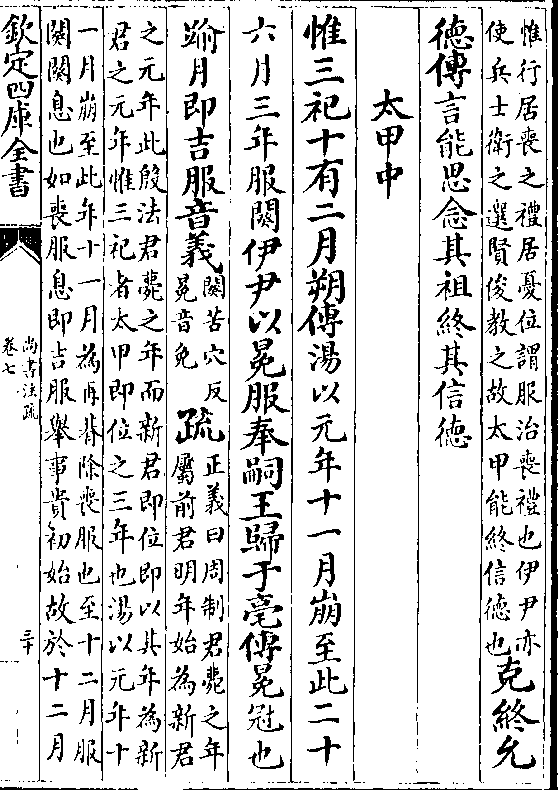 惟行居喪之禮居憂位謂服治喪禮也伊尹亦
使兵士衛之選賢俊教之故太甲能終信德也克終允
德傳言能思念其祖終其信德
太甲中
惟三祀十有二月朔傳湯以元年十一月崩至此二十
六月三年服闋伊尹以冕服奉嗣王歸于亳傳冕冠也
踰月即吉服音義闋苦穴反
冕音免疏正義曰周制君薨之年
屬前君明年始為新君
之元年此殷法君薨之年而新君即位即以其年為新
君之元年惟三祀者太甲即位之三年也湯以元年十
一月崩至此年十一月為再朞除喪服也至十二月服
闋闋息也如喪服息即吉服舉事貴初始故於十二月
欽定四庫全書
尚書注疏
卷七
三十